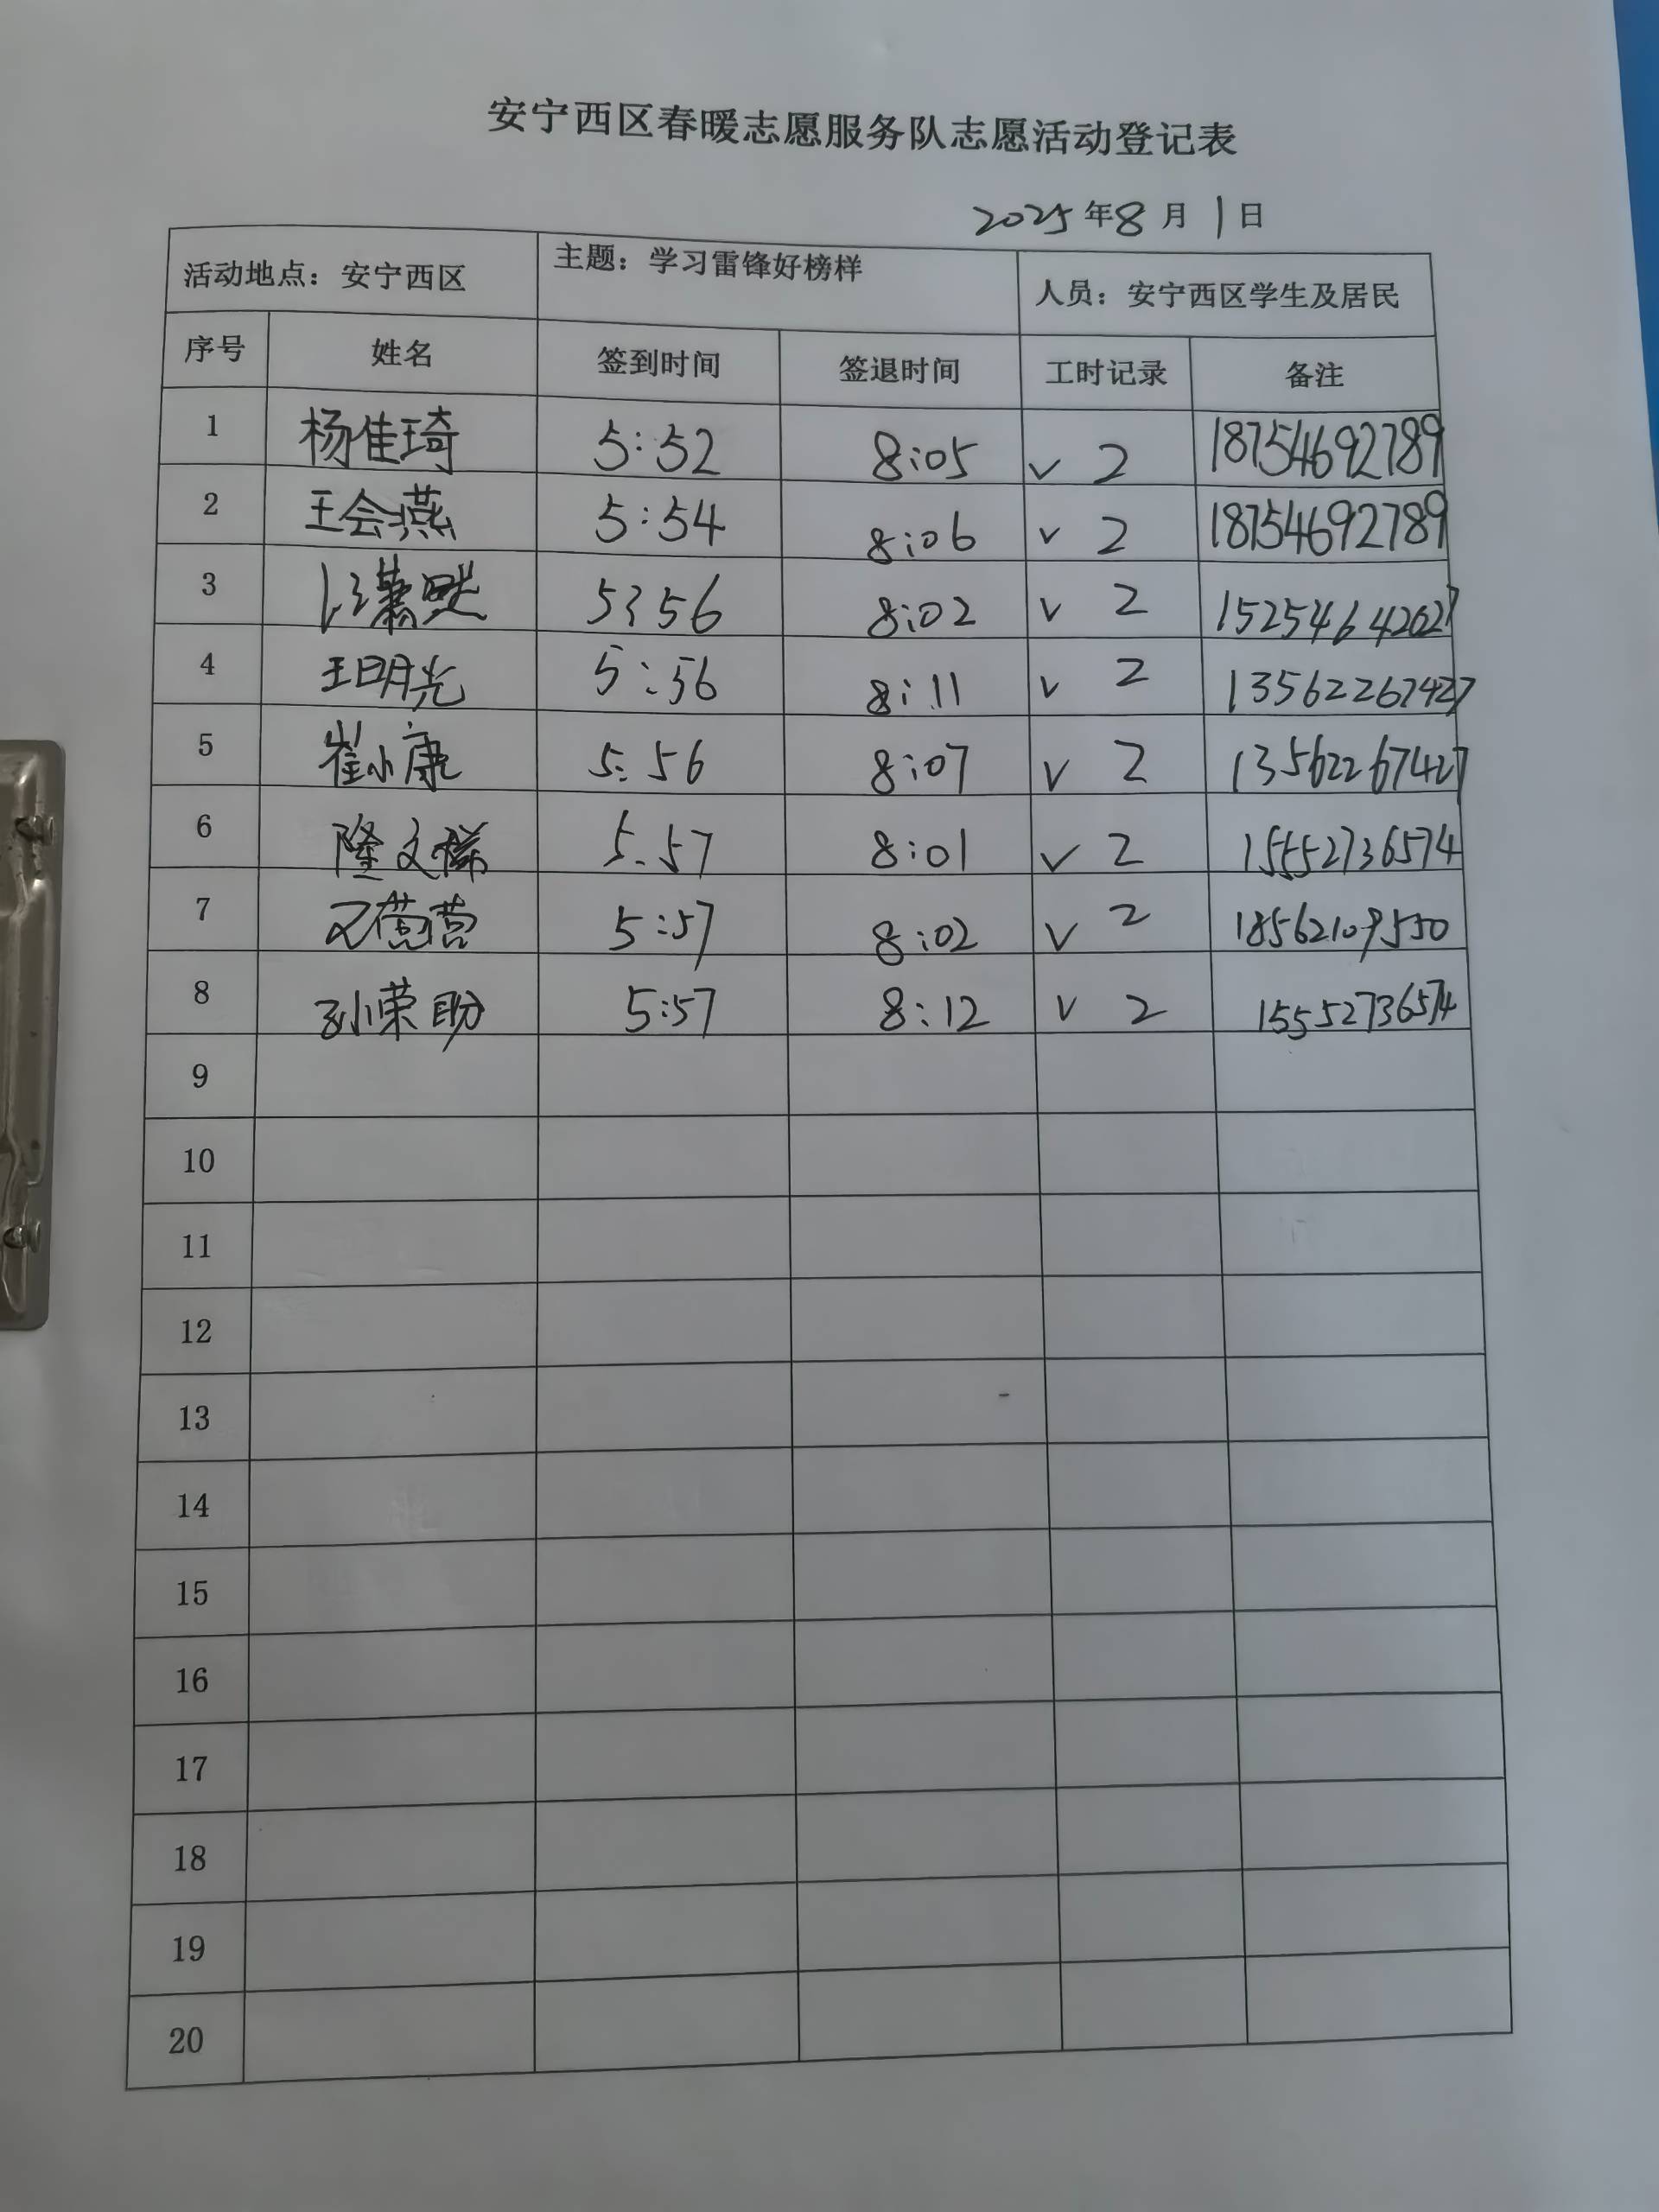 安宁西区春暖志愿服务队志愿活动登记表
2025年8月1日
活动地点：安宁西区 主题：学习雷锋好榜样 人员：安宁西区学生及居民
序号 姓名 签到时间 签退时间 工时记录 备注
1 杨佳琦 5:52 8:05 √ 2 18754692789
2 王会燕 5:54 8:06 √ 2 18754692789
3 5:56 8:02 √ 2 15254642627
4 王明光 5:56 8:11 √ 2 13562267427
5 崔小康 5:56 8:07 √ 2 13562267427
6 隆文 5:57 8:01 √ 2 15552736574
7 5:57 8:02 √ 2 18562109550
8 孙荣盼 5:57 8:12 √ 2 15552736574
9
10
11
12
13
14
15
16
17
18
19
20